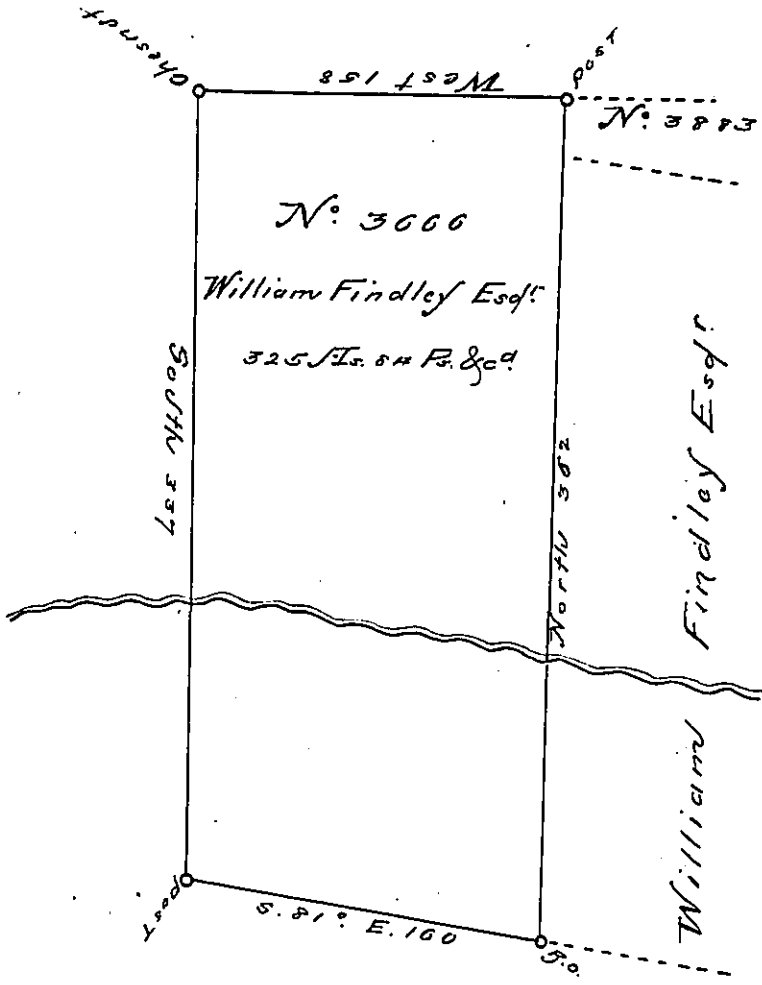 Chesnut
West 158
post
Nº. 3883
Nº. 3666
William Findley Esqr.
325 As. 84 Ps. &ca.
South 337
North 362
William Findley Esqr.
post
S. 81º. E. 160
B.O.